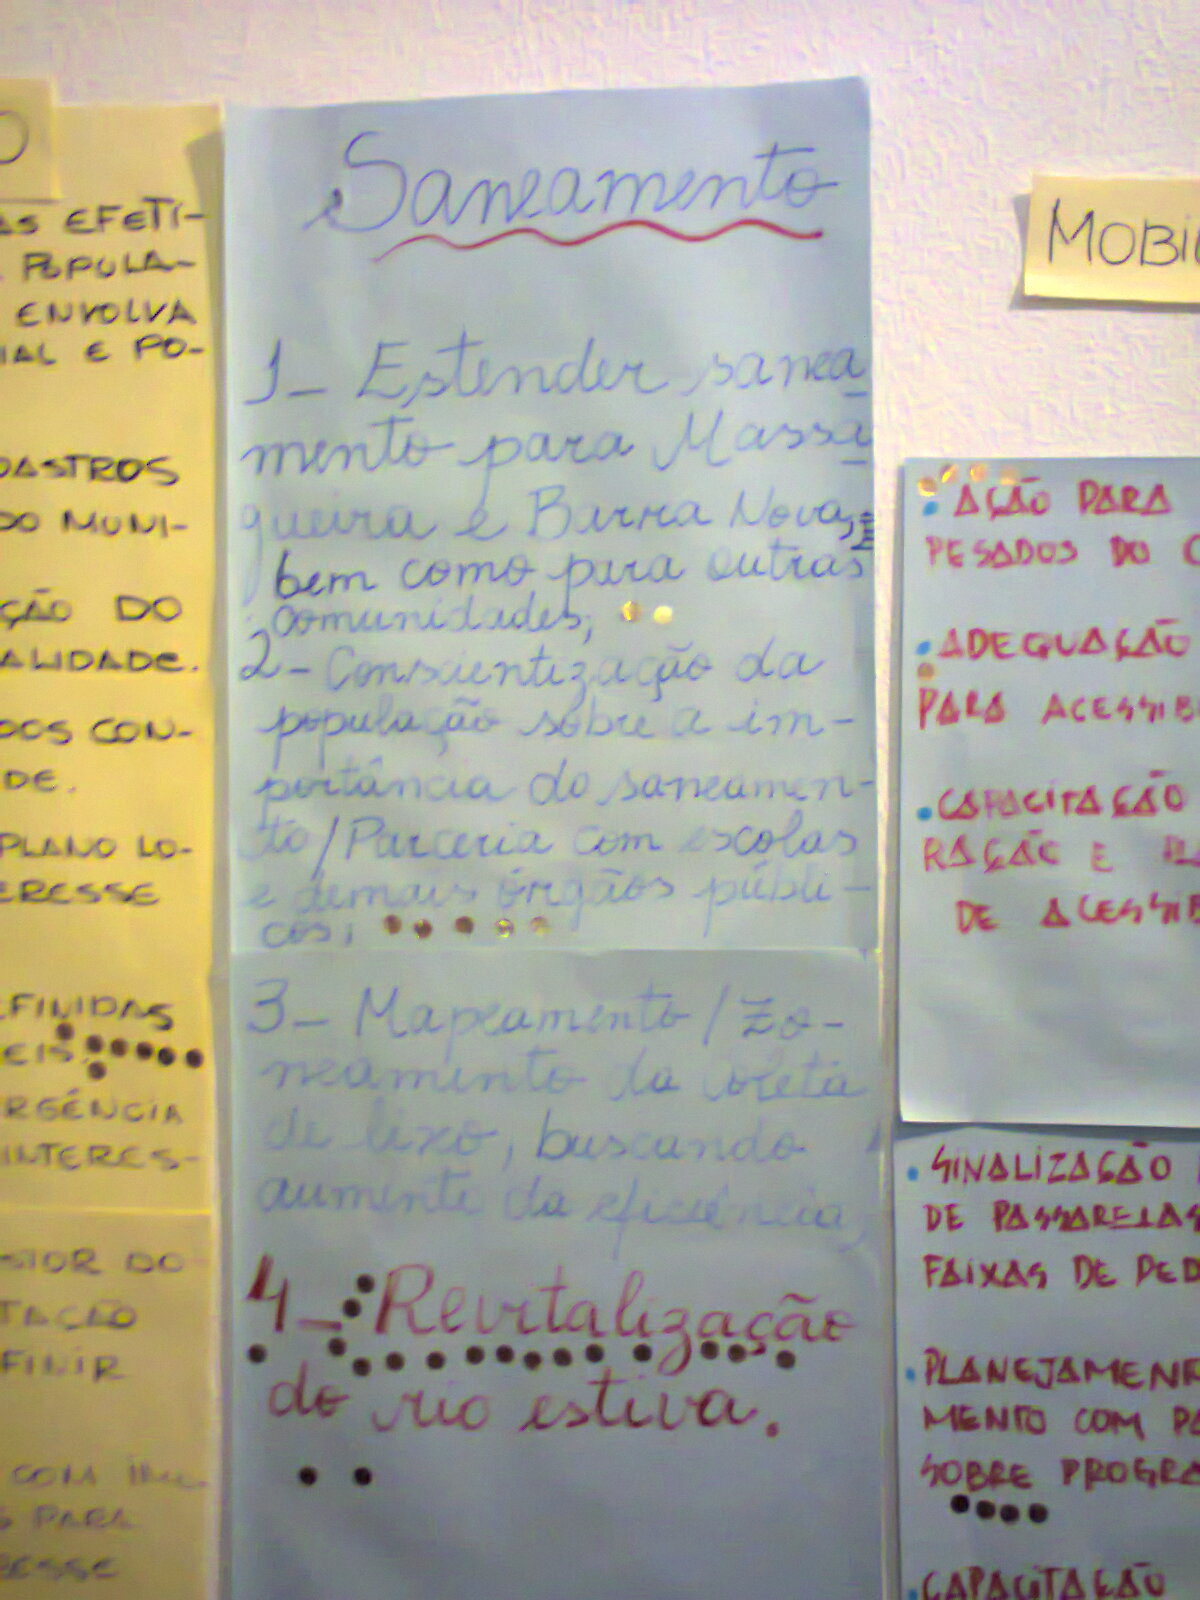 O
AS EFETI-
POPULA-
ENVOLVA
IAL E PO-
DASTROS
DO MUNI-
ÇÃO DO
ALIDADE.
DOS CON-
DE.
PLANO LO-
ERESSE
EFINIDAS
EIS.
RGÊNCIA
INTERES-
SIOR DO
TAÇÃO
FINIR
COM
S PARA
RESSE
Saneamento
1- Estender sanea
mento para Massa
gueira e Barra Nova,
bem como para outras
comunidades;
2- Conscientização da
população sobre a im-
portância do saneamen-
to/Parceria com escolas
e demais órgãos públi-
cos;
3- Mapeamento/Zo-
neamento da coleta
de lixo, buscando
aumento da eficiência;
4- Revitalização
do rio estiva.
MOBIL
• AÇÃO PARA
PESADOS DO C
• ADEQUAÇÃO
PARA ACESSIB
• CAPACITAÇÃO
RAÇÃO E
DE ACESSIB
• SINALIZAÇÃO
DE PASSARELAS
FAIXAS DE PED
• PLANEJAMEN
MENTO COM PA
SOBRE PROGRA
• CAPACITAÇÃO